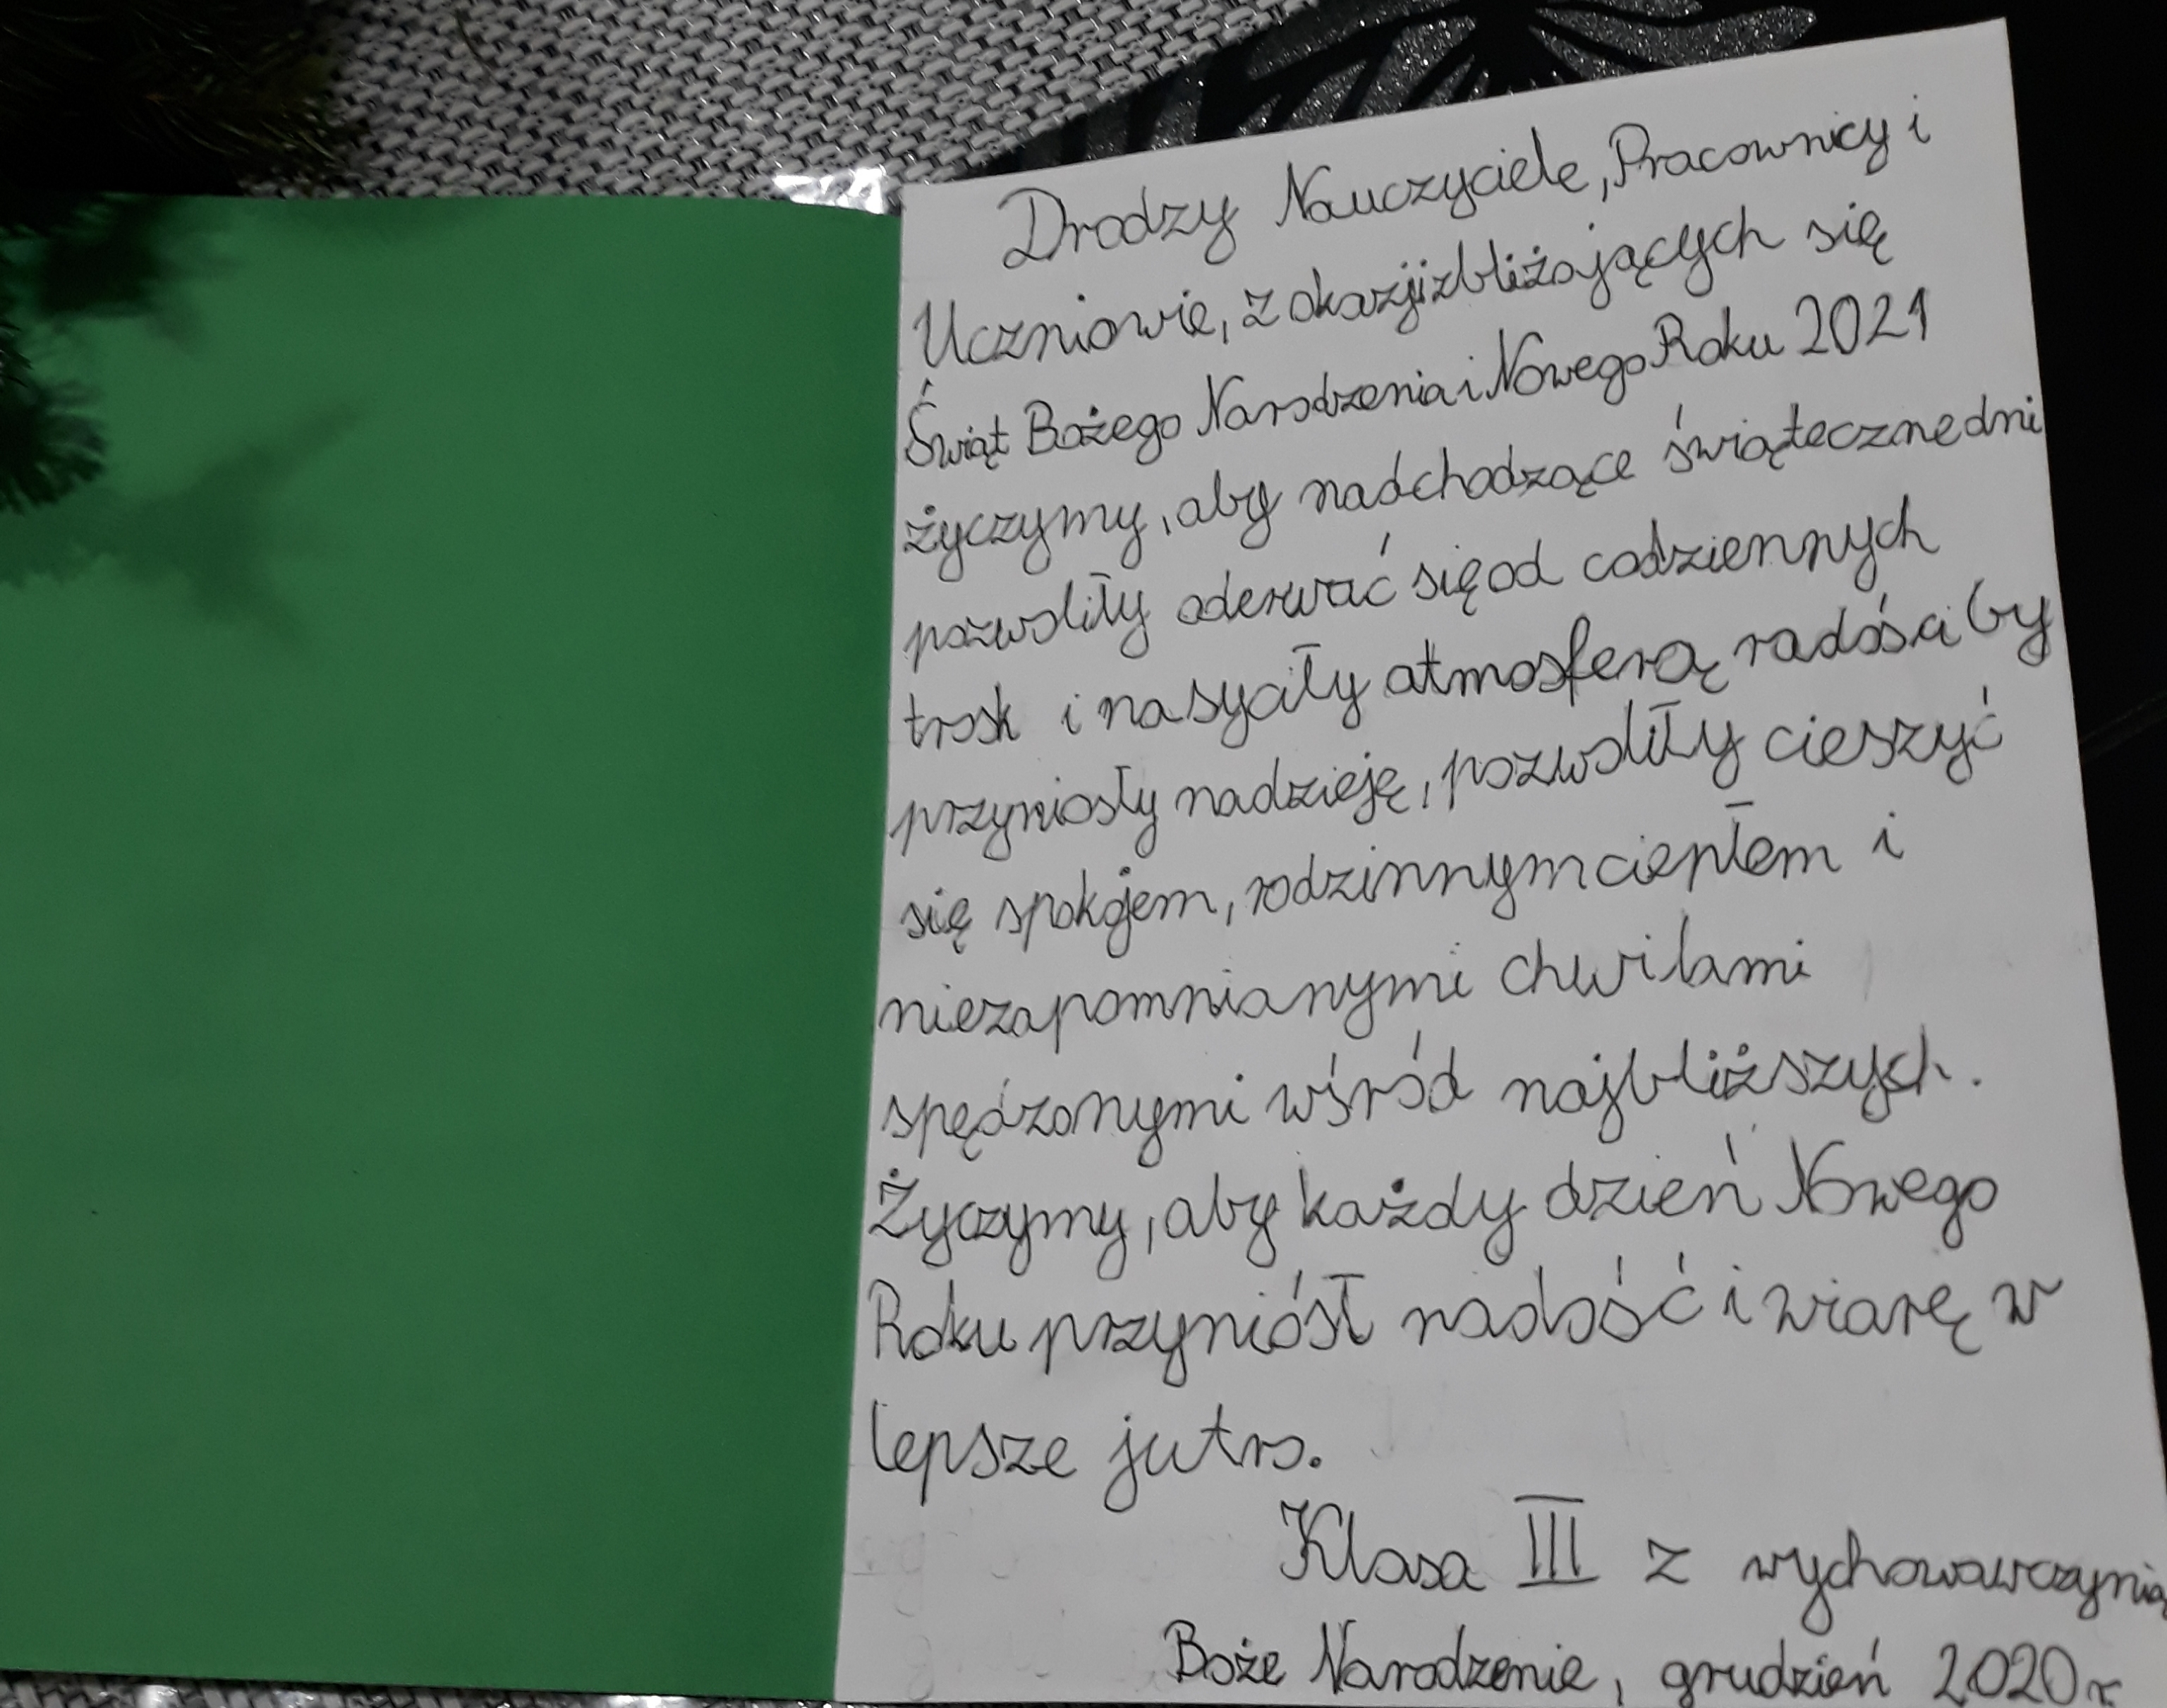 Drodzy Nauczyciele, Pracownicy i
Uczniowie, z okazji zbliżających się
Świąt Bożego Narodzenia i Nowego Roku 2021
życzymy, aby nadchodzące świąteczne dni
pozwoliły oderwać się od codziennych
trosk i nasyciły atmosferą radości by
przyniosły nadzieję, pozwoliły cieszyć
się spokojem, rodzinnym ciepłem i
niezapomnianymi chwilami
spędzonymi wśród najbliższych.
Życzymy, aby każdy dzień Nowego
Roku przyniósł radość i wiarę w
lepsze jutro.
Klasa III z wychowawczynią
Boże Narodzenie, grudzień 2020r